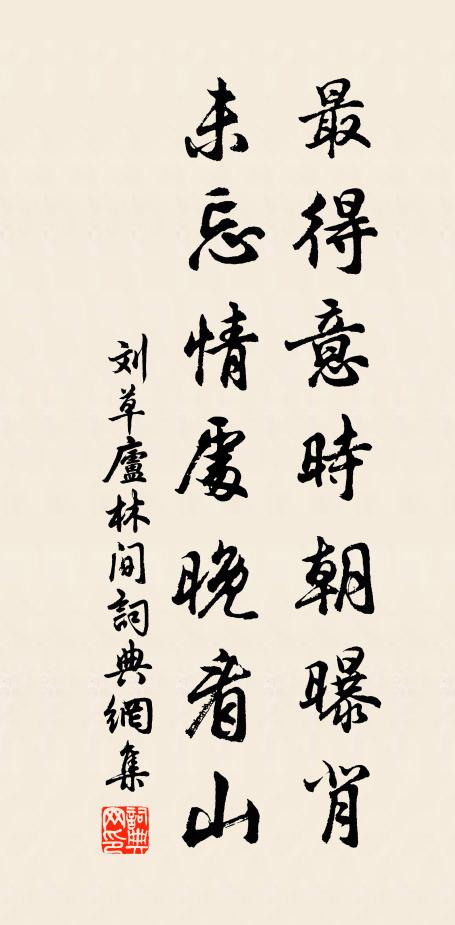 最得意時朝曝背
未忘情處晚看山
刘草廬林间詞典網集
詞典网印